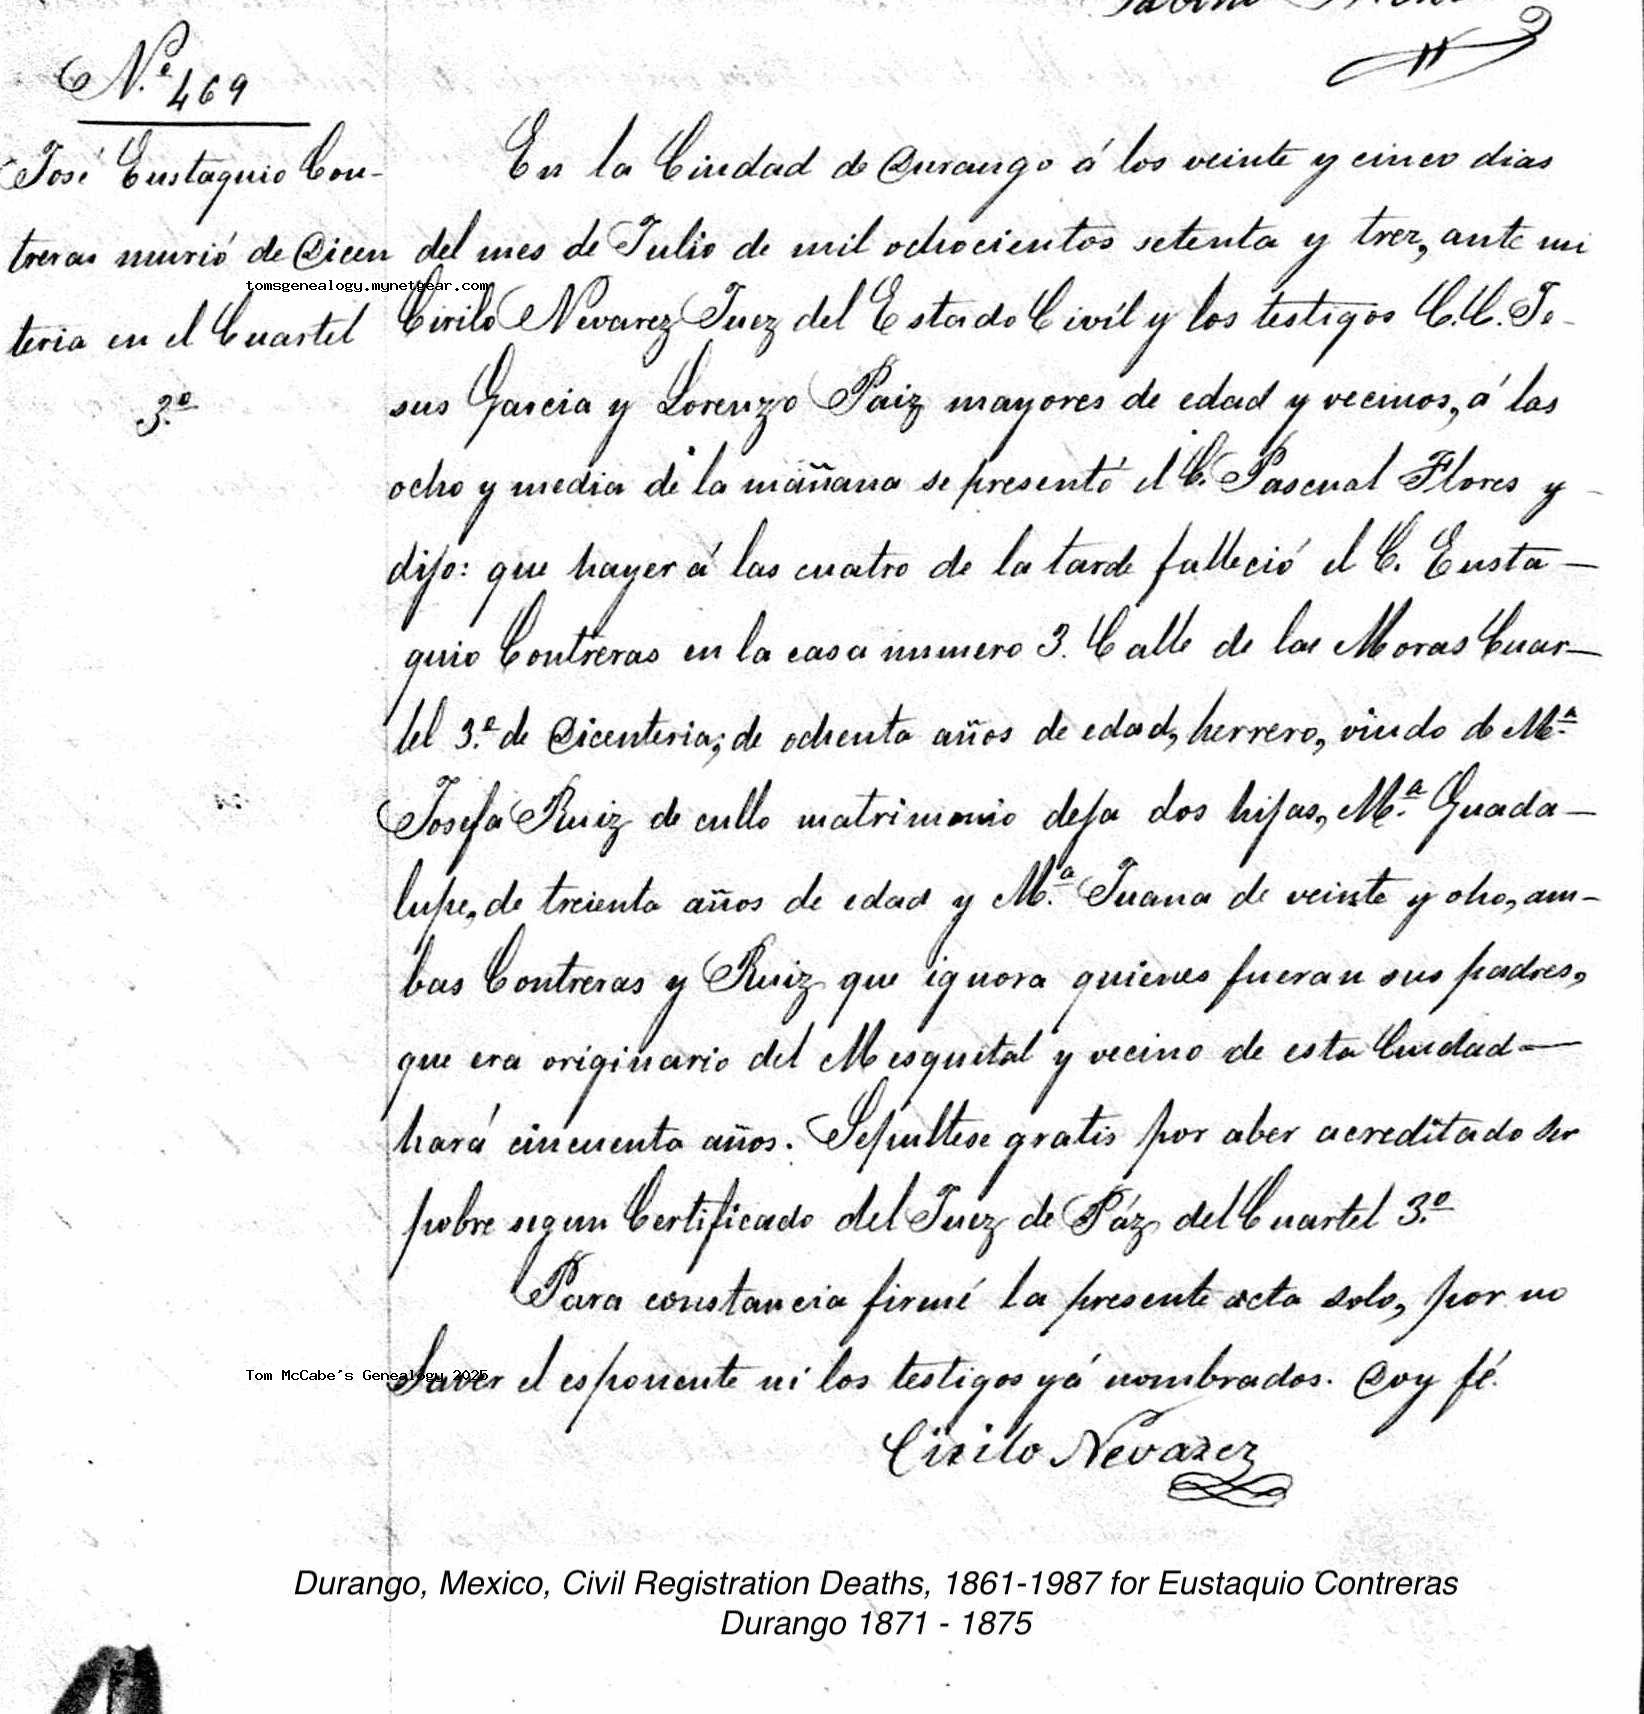 Nº. 469
José Eustaquio Con-
treras murió de Dicen
teria en el Cuartel
3.º
En la Ciudad de Durango á los veinte y cinco dias
del mes de Julio de mil ochocientos setenta y trez, ante mi
Cirilo Nevarez Juez del Estado Civíl y los testigos C.C. Je-
sus Garcia y Lorenzo Paiz mayores de edad y vecinos, á las
ocho y media de la mañana se presentó el C. Pascual Flores y
dijo: que hayer á las cuatro de la tarde falleció el C. Eusta-
quio Contreras en la casa numero 3. Calle de las Moras Cuar-
tel 3.º de Dicenteria; de ochenta años de edad, herrero, viudo de Mª.
Josefa Ruiz de cullo matrimonio deja dos hijas, M.ª Guada-
lupe, de treienta años de edad y M.ª Juana de veinte y oho, am-
bas Contreras y Ruiz que ignora quienes fueran sus padres,
que era originario del Mesquital y vecino de esta Ciudad-
hará cincuenta años. Sepultese gratis por aber acreditado ser
pobre segun Certificado del Juez de Páz del Cuartel 3.º
Para constancia firmé la presente acta solo, por no
Saver el esponente ni los testigos yá nombrados. Doy fé.
Cirilo Nevarez
tomsgenealogy.mynetgear.com
Tom McCabe's Genealogy 2025
Durango, Mexico, Civil Registration Deaths, 1861-1987 for Eustaquio Contreras
Durango 1871 - 1875